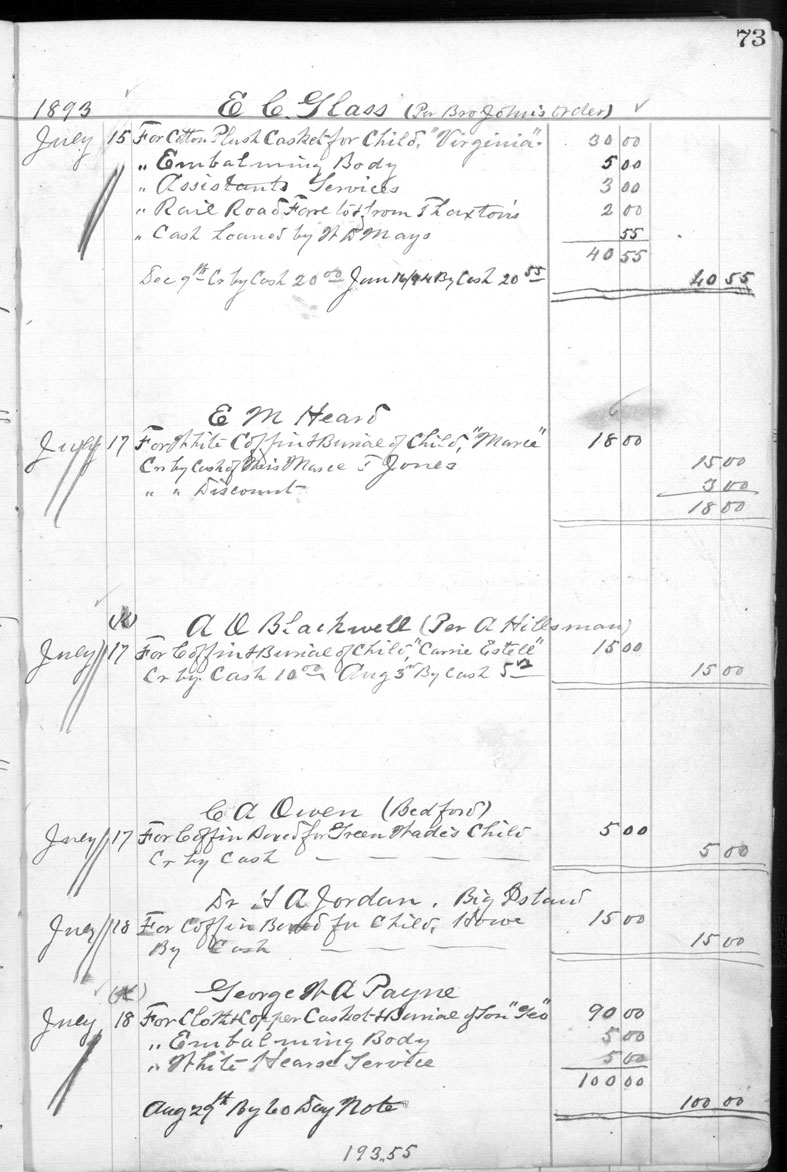 73
1893 E C. Glass (Per Bro John's Order)
July 15 For Cotton Plush Casket for Child, "Virginia". 30 00
" Embalming Body 5 00
" Assistants Services 3 00
" Rail Road Fare to & from Thaxton's 2 00
" Cash Loaned by W D Mays 55
40 55
Dec 9th Cr by Cash 20 00 Jan 16/94 By Cash 20 55 40 55
E M Heard
July 17 For White Coffin & Burial of Child, "Marie" 18 00
Cr by Cash of Miss Marie T Jones 15 00
" " Discount 3 00
18 00
A O Blackwell (Per A Hillsman)
July 17 For Coffin & Burial of Child, "Carrie Estell" 15 00
Cr by Cash 10 00 Aug 3rd By Cash 5 00 15 00
C A Owen (Bedford)
July 17 For Coffin Boxed for Green Wade's Child 5 00
Cr by Cash — — — — 5 00
Dr H A Jordan. Big Island
July 18 For Coffin Boxed for Child, Howe 15 00
By Cash — — — 15 00
George W A Payne
July 18 For Cloth & Copper Casket & Burial of Son "Geo" 90 00
" Embalming Body 5 00
" White Hearse Service 5 00
100 00
Aug 29th By 60 Day Note 100 00
193.55